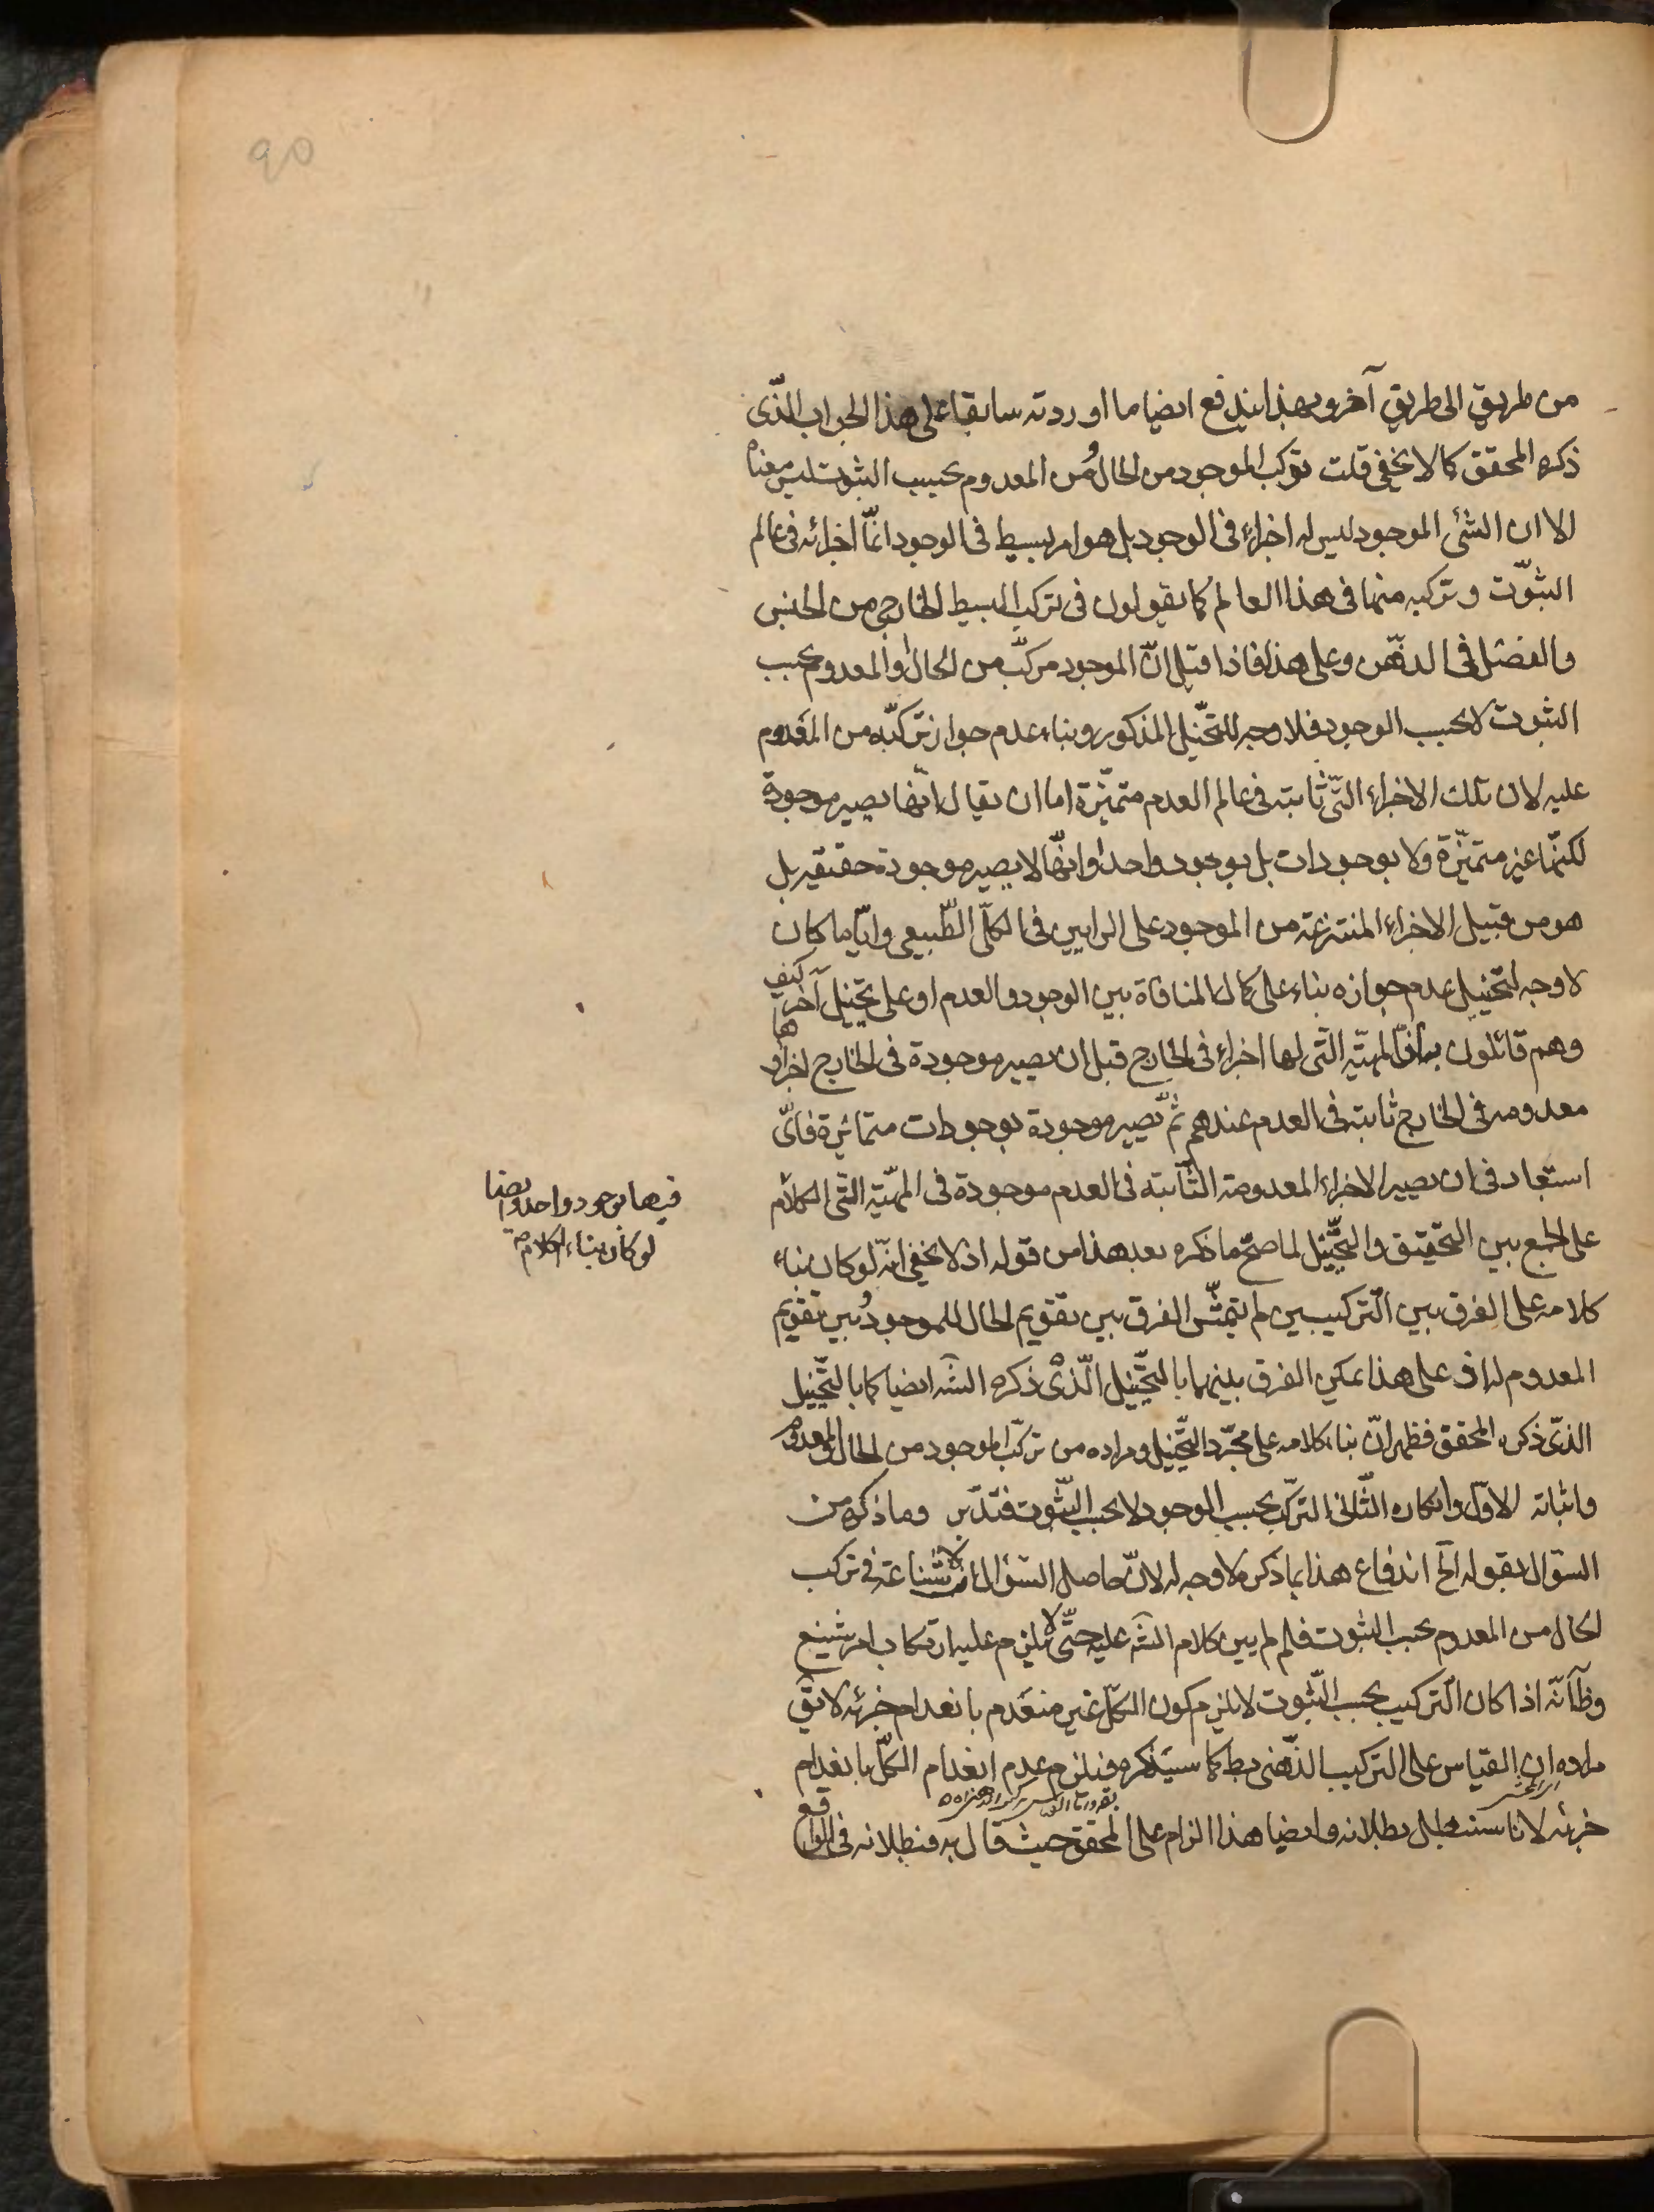 من طريق الى طريق آخر وبهذا يندفع ايضا ما اوردته سابقا على هذا الجواب الذّى
ذكره المحقق كما لا يخفى قلت تركب الموجود من الحال ومن المعدوم بحسب الثبوت ليس معناه
الا ان الشئ الموجود ليس له اجزاء فى الوجود بل هو امر بسيط فى الوجود انّما اجزائه فى عالم
الثبوّت وتركبه منها فى هذا العالم كما يقولون فى تركب البسيط الخارجى من الجنس
والفصل فى الذهّن وعلى هذا فاذا قيل انّ الموجود مركّب من الحال والمعدوم بحسب
الثبوت لا بحسب الوجود فلا وجه للتخّيل المذكور وبناء عدم جواز تركبّه من المعدوم
عليه لان تلك الاجزاء التّى ثابتة فى عالم العدم متميّزة اما ان يقال انّها يصير موجودة
لكنّها غير متميّزة ولا بوجودات بل بوجود واحد او انّها لا يصير موجودة حقيقة بل
هو من قبيل الاجزاء المنتزعة من الموجود على الرايين فى الكلّى الطّبيعى وايّا ما كان
لا وجه لتخّيل عدم جوازه بناء على كمال المنافاة بين الوجود والعدم او على تخيّل آخر كيف
وهم قائلون بانّ المهيّة التّى لها اجزاء فى الخارج قبل ان يصير موجودة فى الخارج اجزاؤها
معدومة فى الخارج ثابتة فى العدم عندهم ثمّ يصير موجودة بوجودات متمائزة فاىّ
استبعاد فى ان يصير الاجزاء المعدومة الثّابتة فى العدم موجودة فى المهيّة التّى الكلام
فيها بوجود واحد وايضا
لو كان بناء الكلام
على الجمع بين التحّقيق والتخّييل لما صحّ ما ذكره بعد هذا من قوله اذ لا يخفى انّه لو كان بناء
كلامه على الفرق بين التّركيبين لم يتمشّ الفرق بين تقويم الحال للموجود وبين تقويم
المعدوم له اذ على هذا يمكن الفرق بينهما بالتخّييل الّذى ذكره الشّه ايضا كما بالتخّييل
الذّى ذكره المحقق فظهر انّ بناء كلامه على مجرّد التخّييل ومراده من تركّب الموجود من الحال والمعدوم
واثباته الاوّل وانكاره الثّانى التركّب بحسب الوجود لا بحسب الثّبوت فتدّبر وما ذكره من
السّؤال بقوله الخ اندفاع هذا بما ذكر ملا وجه له لانّ حاصل السّؤال انه لا شناعة فى تركب
الحال من المعدوم بحسب الثبوت فلم لم يبن كلام الشّه عليه حتّى لا يلزم عليه ارتكاب امر شنيع
وظآنّه اذا كان التّركيب بحسب الثّبوت لا يلزم كون الكلّ غير منعدم بانعدام جزئه لا يقّ
مراده ان القياس على التركيب الذّهنى بط كما سيذكره فيلزم عدم انعدام الكلّ بانعدام
جزئه لانا سنبطل بطلانه وايضا هذا الزام على المحقق حيث قال به فبطلانه فى الواقع